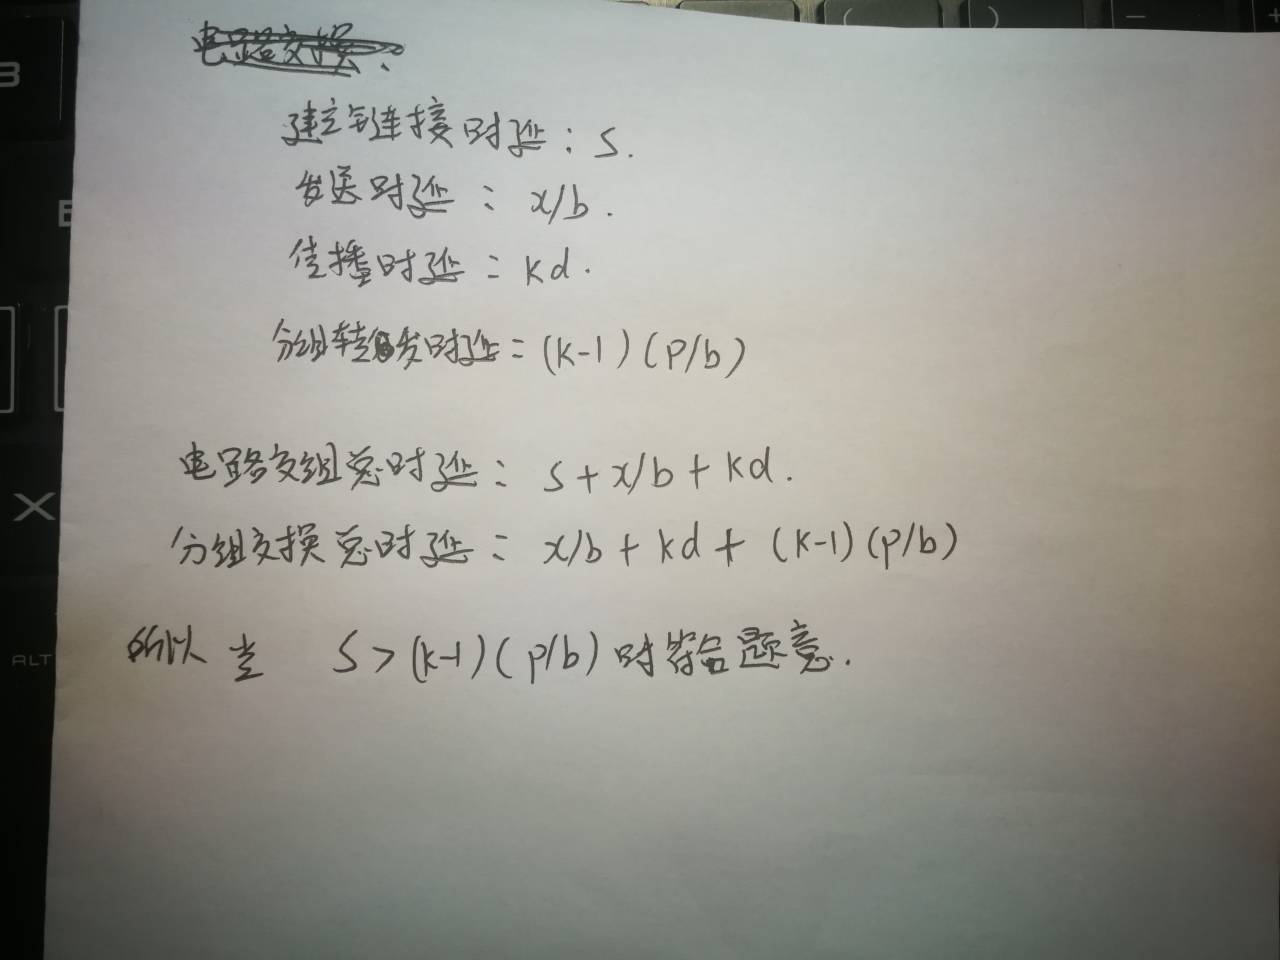 电路交换.
建立连接时延: S.
发送时延: x/b.
传播时延: kd.
分组转发时延: (k-1)(p/b)
电路交组总时延: S+x/b+kd.
分组交换总时延: x/b+kd+(k-1)(p/b)
所以当 S>(k-1)(p/b)时符合题意.
B
X
ALT
( ) - +